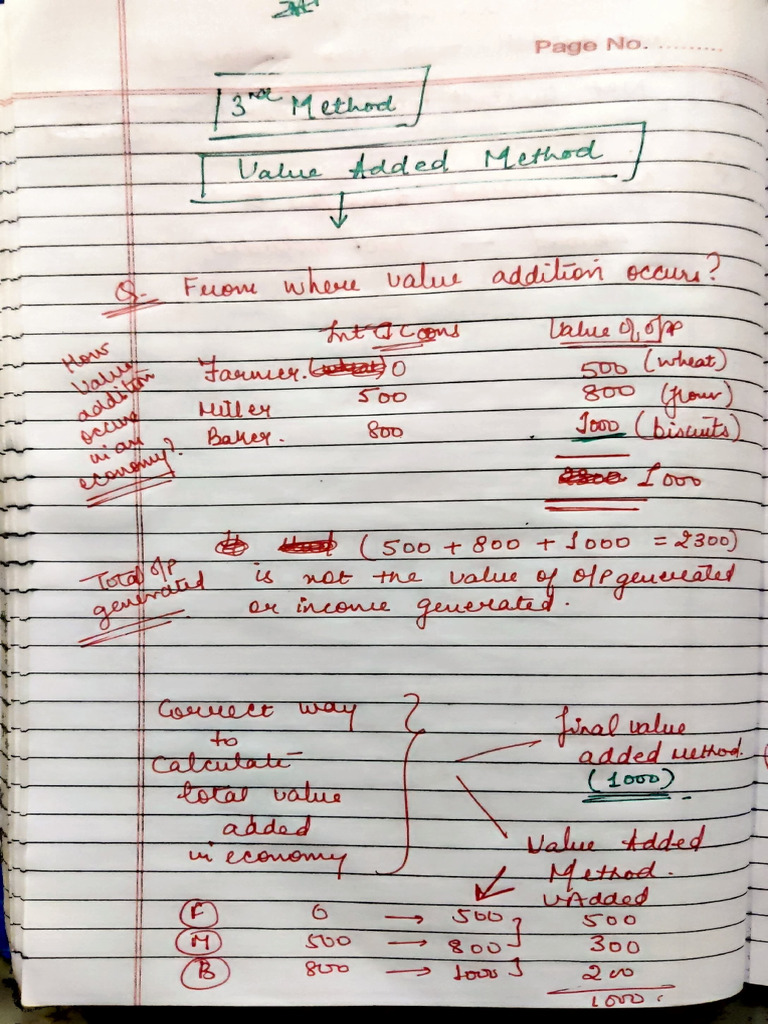 Page No. ..........
3rd Method
Value Added Method
Q. From where value addition occurs?
How value addition occurs in an economy?
Int Cons Value of o/p
Farmer. 0 500 (wheat)
Miller 500 800 (flour)
Baker. 800 1000 (biscuits)
1000
(500 + 800 + 1000 = 2300)
Total o/p generated
is not the value of o/p generated
or income generated.
Correct way
to
Calculate
total value
added
in economy
final value
added method.
(1000)
Value Added
Method.
V.Added
F 0 → 500 500
M 500 → 800 300
B 800 → 1000 200
1000.